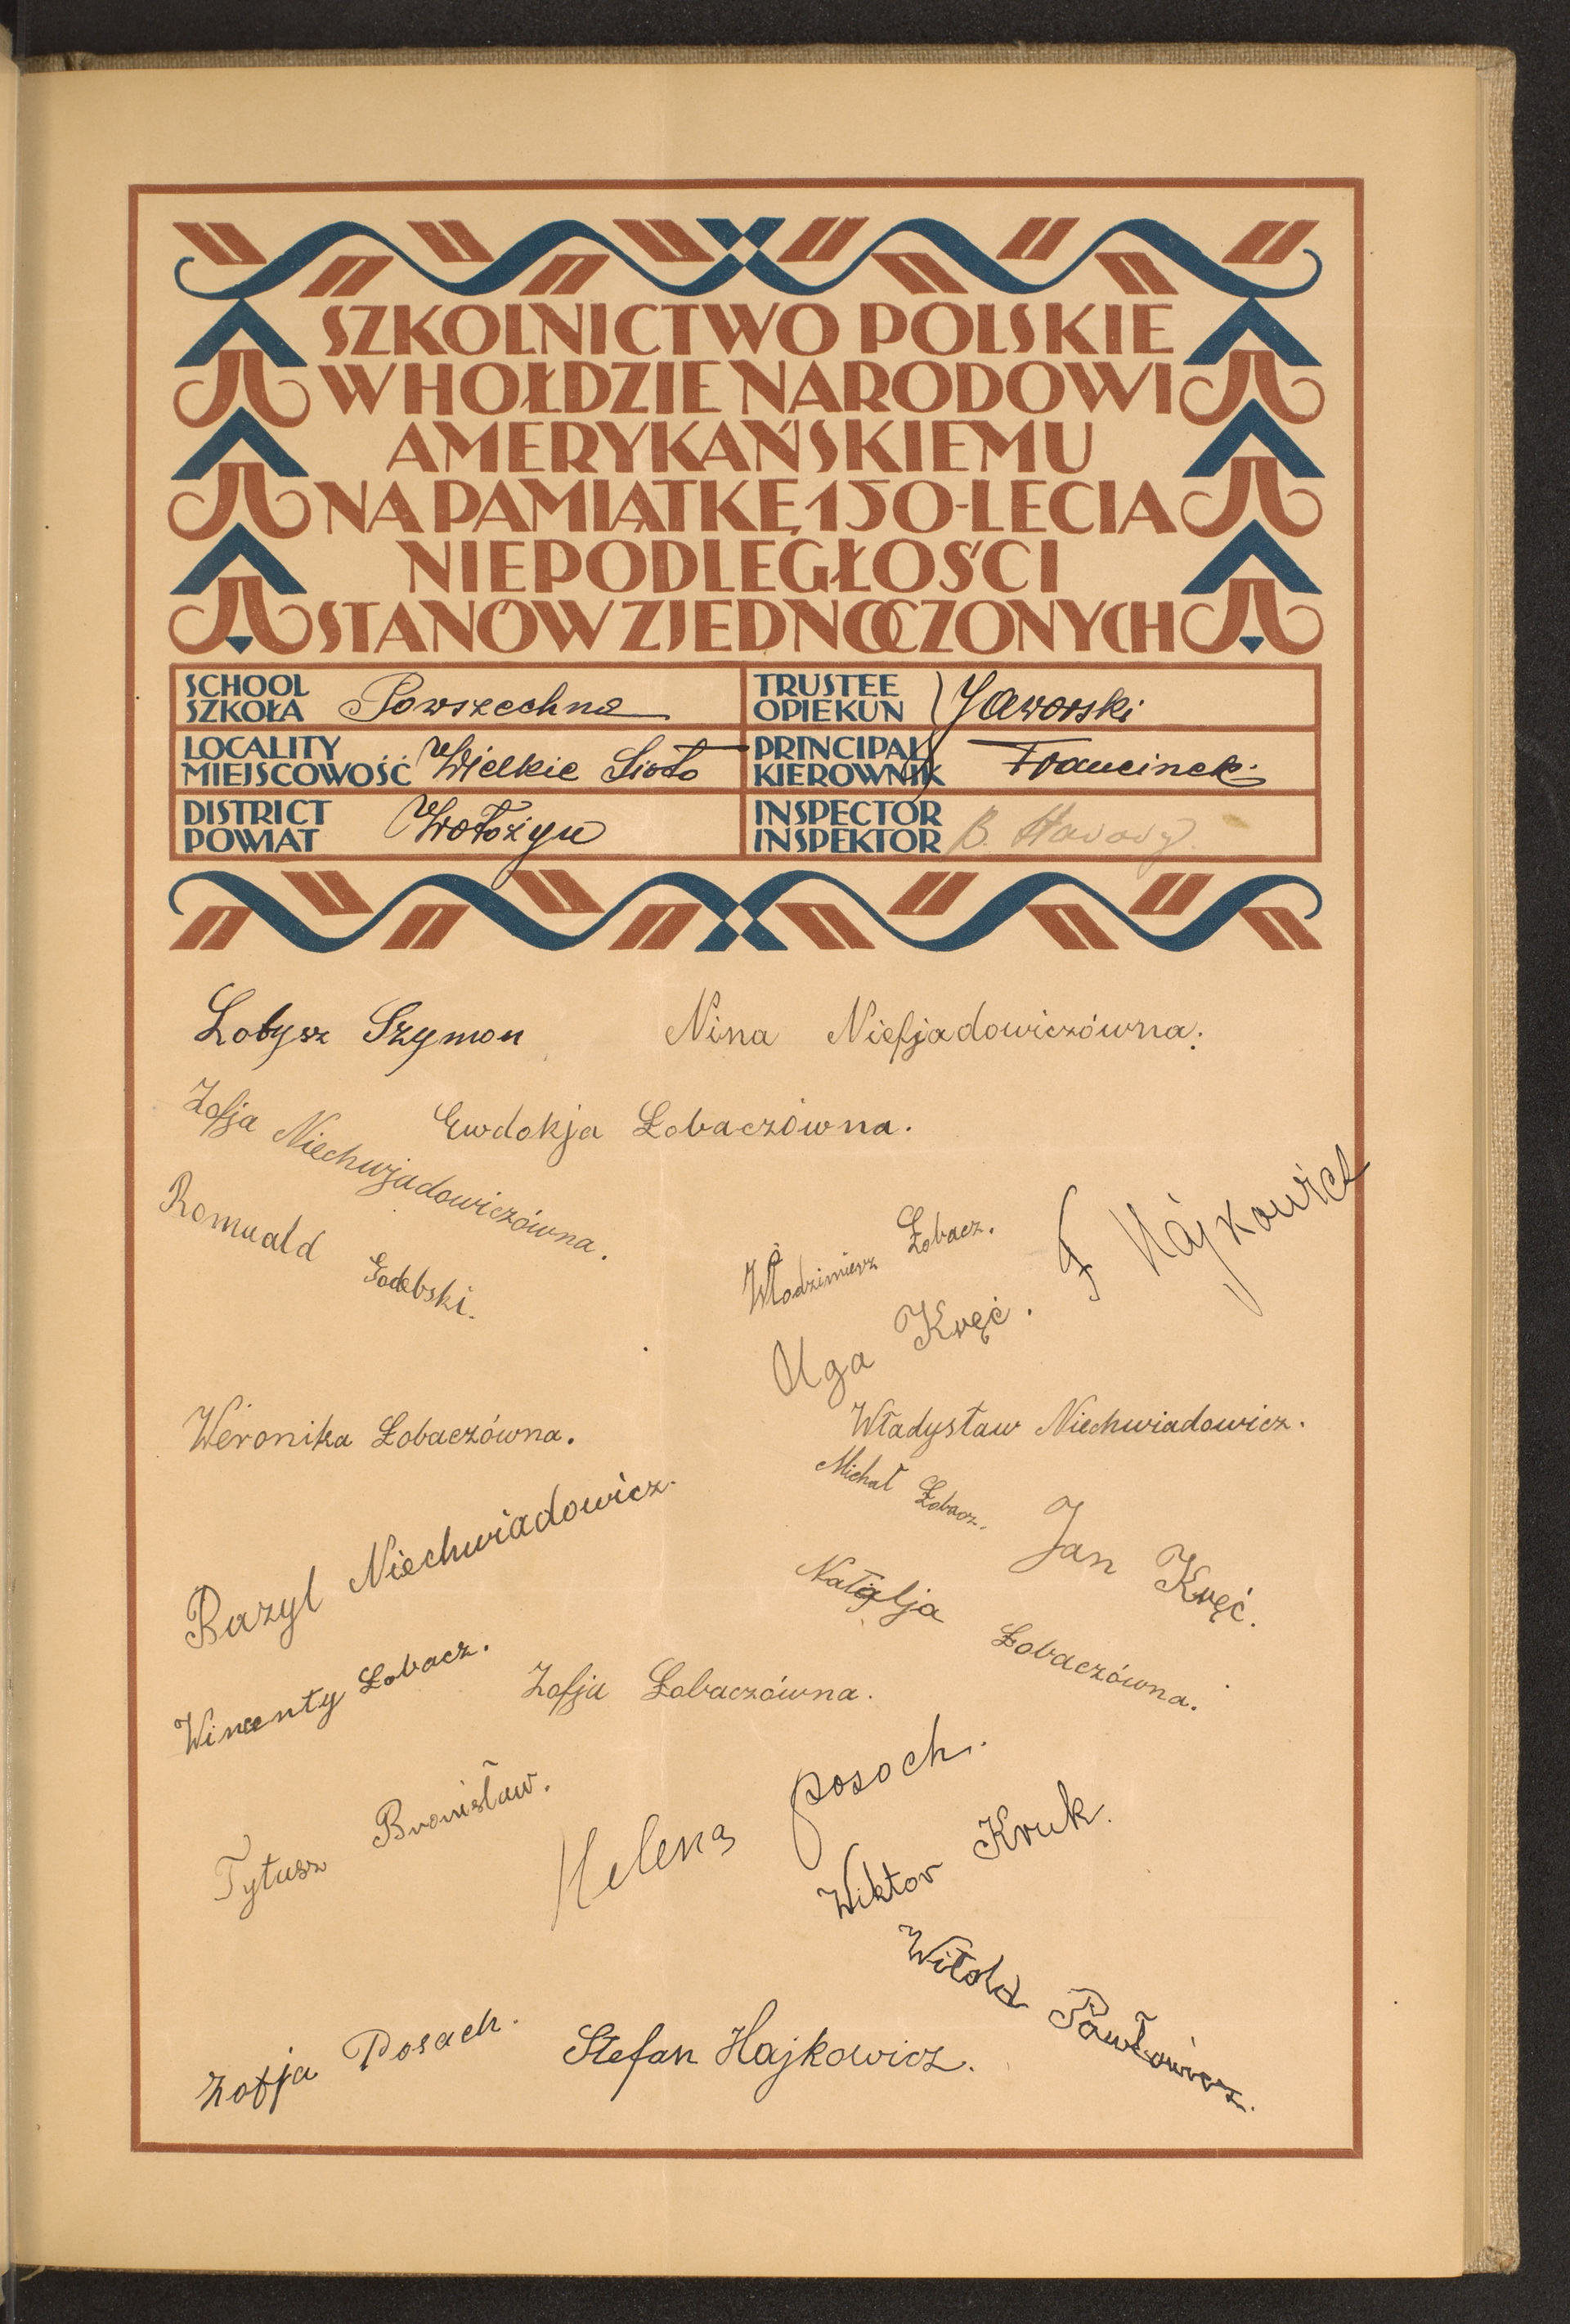 SZKOLNICTWO POLSKIE
W HOŁDZIE NARODOWI
AMERYKAŃSKIEMU
NA PAMIĄTKĘ 150-LECIA
NIEPODLEGŁOŚCI
STANÓW ZJEDNOCZONYCH
SCHOOL
SZKOŁA Powszechna
TRUSTEE
OPIEKUN Jaworski
LOCALITY
MIEJSCOWOŚĆ Wielkie Sioło
PRINCIPAL
KIEROWNIK Francinek.
DISTRICT
POWIAT Wołożyn
INSPECTOR
INSPEKTOR B.
Łobysz Szymon
Nina Niefjadowiczówna.
Zofja Niechwjadowiczówna.
Ewdokja Łobaczówna.
Romuald Godebski.
Włodzimierz Łobacz.
F Hajkowicz
Olga Kręć.
Weronika Łobaczówna.
Władysław Niechwiadowicz.
Michał Łobacz.
Jan Kręć.
Bazyl Niechwiadowicz.
Natalja Łobaczówna.
Wincenty Łobacz.
Zofja Łobaczówna.
Tytusz Bronisław.
Helena posoch.
Wiktor Kruk.
Witold Pawłowicz.
Zofja Posach.
Stefan Hajkowicz.